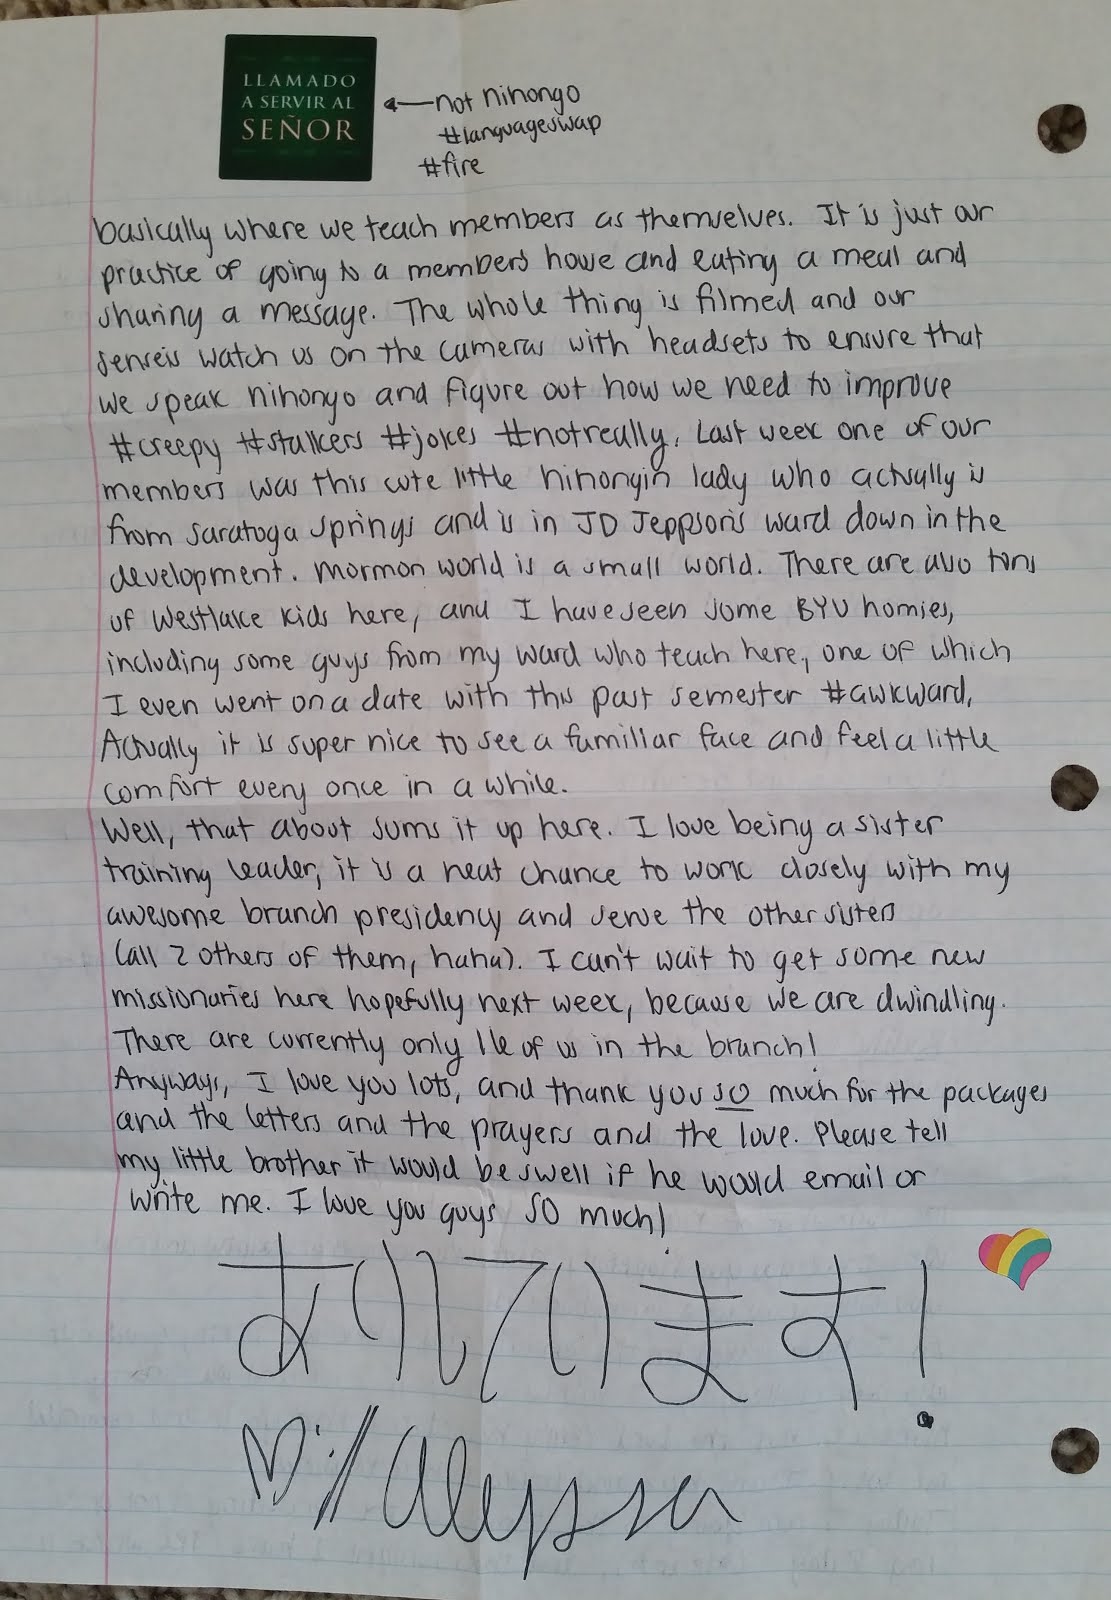 LLAMADO
A SERVIR AL
SEÑOR
←not nihongo
#languageswap
#fire
basically where we teach members as themselves. It is just our
practice of going to a members house and eating a meal and
sharing a message. The whole thing is filmed and our
senseis watch us on the cameras with headsets to ensure that
we speak nihongo and figure out how we need to improve
#creepy #stalkers #jokes #notreally. Last week one of our
members was this cute little nihongin lady who actually is
from Saratoga Springs and is in JD Jeppson's ward down in the
development. Mormon world is a small world. There are also tons
of Westlake kids here, and I have seen some BYU homies,
including some guys from my ward who teach here, one of which
I even went on a date with this past semester #awkward.
Actually it is super nice to see a familiar face and feel a little
comfort every once in a while.
Well, that about sums it up here. I love being a sister
training leader, it is a neat chance to work closely with my
awesome branch presidency and serve the other sisters
(all 2 others of them, haha). I can't wait to get some new
missionaries here hopefully next week, because we are dwindling.
There are currently only 16 of us in the branch!
Anyways, I love you lots, and thank you so much for the packages
and the letters and the prayers and the love. Please tell
my little brother it would be swell if he would email or
write me. I love you guys SO much!
あいしています!
♡ :// Alyssa